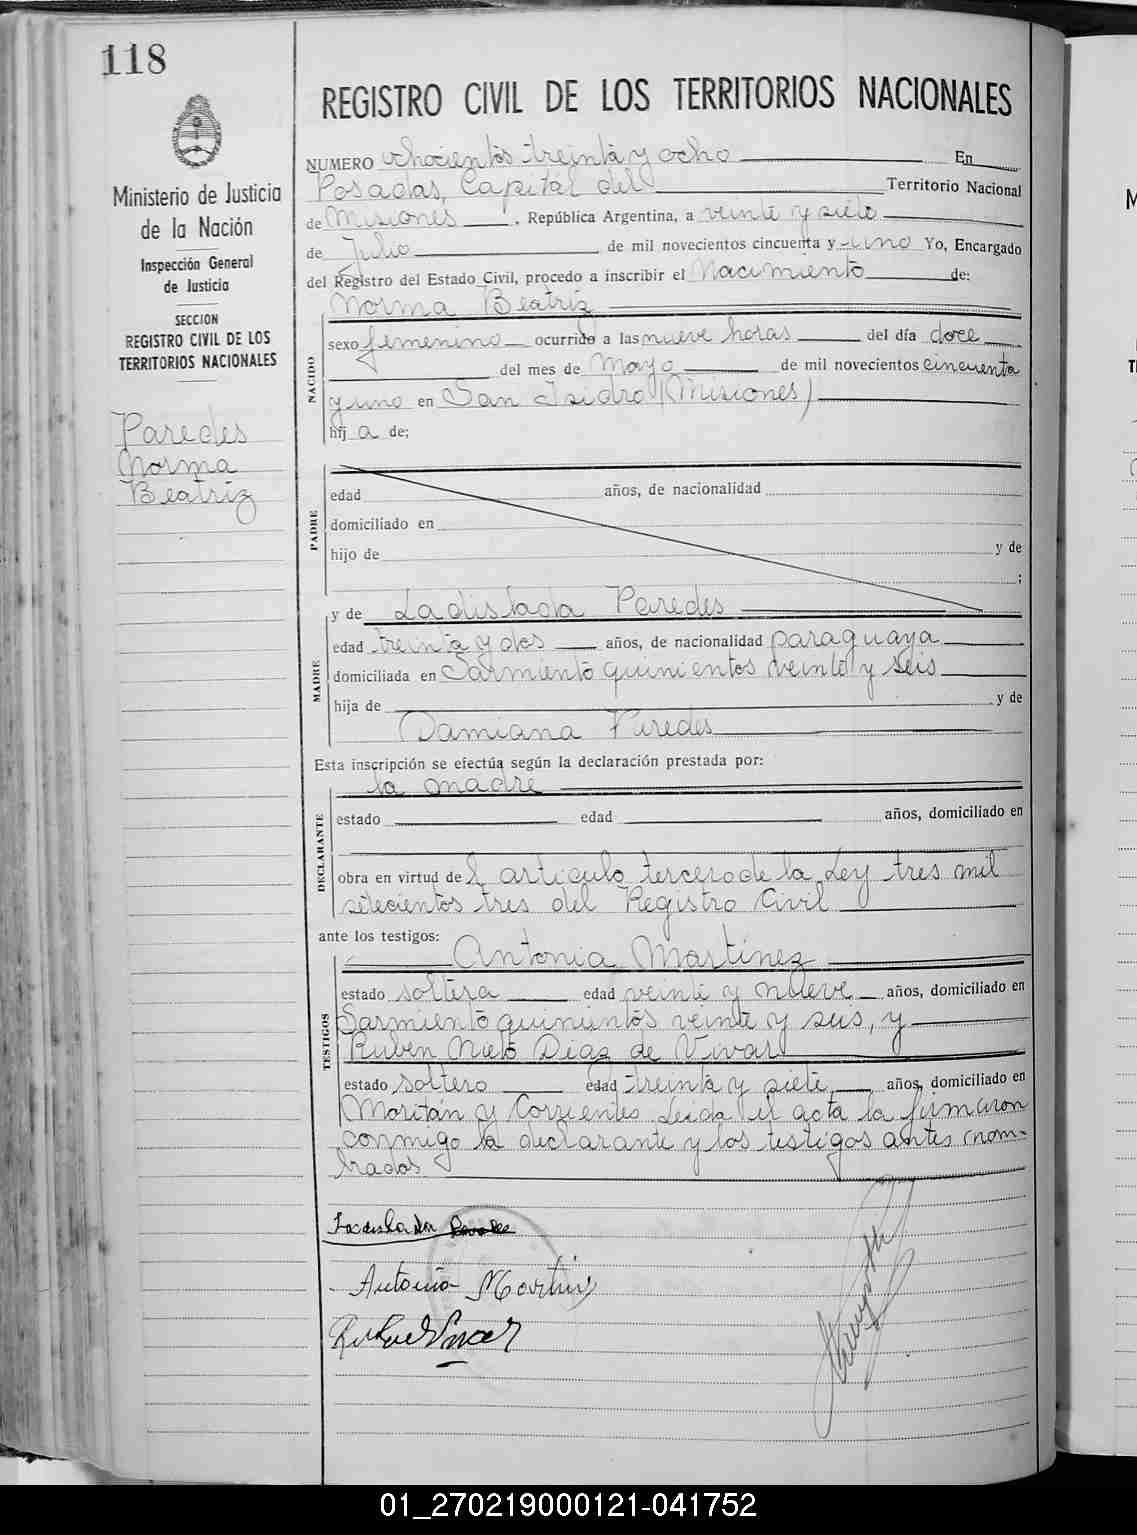 118
Ministerio de Justicia
de la Nación
Inspección General
de Justicia
SECCION
REGISTRO CIVIL DE LOS
TERRITORIOS NACIONALES
Paredes
Norma
Beatriz
REGISTRO CIVIL DE LOS TERRITORIOS NACIONALES
NUMERO ochocientos treinta y ocho En
Posadas, Capital del Territorio Nacional
de Misiones, República Argentina, a veinte y siete
de Julio de mil novecientos cincuenta y uno Yo, Encargado
del Registro del Estado Civil, procedo a inscribir el Nacimiento de:
Norma Beatriz
NACIDO
sexo femenino ocurrido a las nueve horas del día doce
del mes de Mayo de mil novecientos cincuenta
y uno en San Isidro (Misiones)
hij a de;
PADRE
edad años, de nacionalidad
domiciliado en
hijo de y de
;
y de Ladislada Paredes
MADRE
edad treinta y dos años, de nacionalidad paraguaya
domiciliada en Sarmiento quinientos veinte y seis
hija de y de
Damiana Paredes
Esta inscripción se efectúa según la declaración prestada por:
la madre
DECLARANTE
estado edad años, domiciliado en
obra en virtud del artículo tercero de la Ley tres mil
setecientos tres del Registro Civil
ante los testigos:
Antonia Martinez
TESTIGOS
estado soltera edad veinte y nueve años, domiciliado en
Sarmiento quinientos veinte y seis, y
Ruben Nieto Diaz de Vivar
estado soltero edad treinta y siete años, domiciliado en
Moritán y Corrientes. Leida el acta la firmaron
conmigo la declarante y los testigos antes nom-
brados
Antonia Martinez
01_270219000121-041752